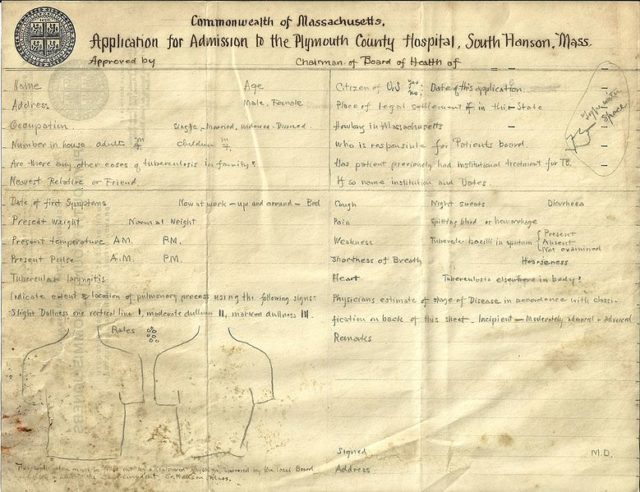 Commonwealth of Massachusetts,
Application for Admission to the Plymouth County Hospital, South Hanson, Mass.
Approved by Chairman of Board of Health of
Name Age
Address Male, Female
Occupation Single - Married, Widowed - Divorced
Number in house adults m f children m f.
Are there any other cases of tuberculosis in family?
Nearest Relative or Friend
Citizen of U.S. yes no; Date of this application
Place of legal settlement if in this State
How long in Massachusetts
Who is responsible for Patients board
Has patient previously had institutional treatment for TB.
If so name institution and Dates.
Typewritten space
Date of first Symptoms Now at work - up and around - Bed
Present Weight Normal Weight
Present temperature A.M. P.M.
Present Pulse A.M. P.M.
Tubercular laryngitis
Indicate extent & location of pulmonary process using the following signs
Slight Dullness one vertical line I, moderate dullness II, marked dullness III.
Rales
Cough Night sweats Diorrhoea
Pain Spitting blood or hemorrhage
Weakness Tubercle bacilli in sputum { Present Absent Not examined
Shortness of Breath Hoarseness
Heart Tuberculosis elsewhere in body?
Physicians estimate of stage of Disease in accordance with classi-
fication on back of this sheet. Incipient - Moderately advanced - Advanced
Remarks
Signed M.D.
Address